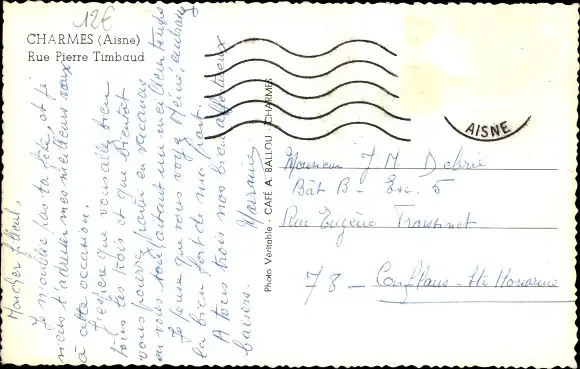 12€
CHARMES (Aisne)
Rue Pierre Timbaud
Mon cher filleul,
Je n'oublie pas ta fête, et je
viens t'adresser mes meilleurs vœux
à cette occasion.
J'espère que vous allez bien
tous les trois et que bientôt
vous pourrez partir en vacances
en vous souhaitant un meilleur temps
Je pense que vous voyez Mémé, embrassez
la bien fort de ma part.
A tous trois nos bien affectueux
baisers.
Marraine
Photo Veritable - CAFÉ A. BALLOU - CHARMES
AISNE
Monsieur J M
Bât B - Esc. 5
Rue Eugène
78 - Conflans-Ste Honorine